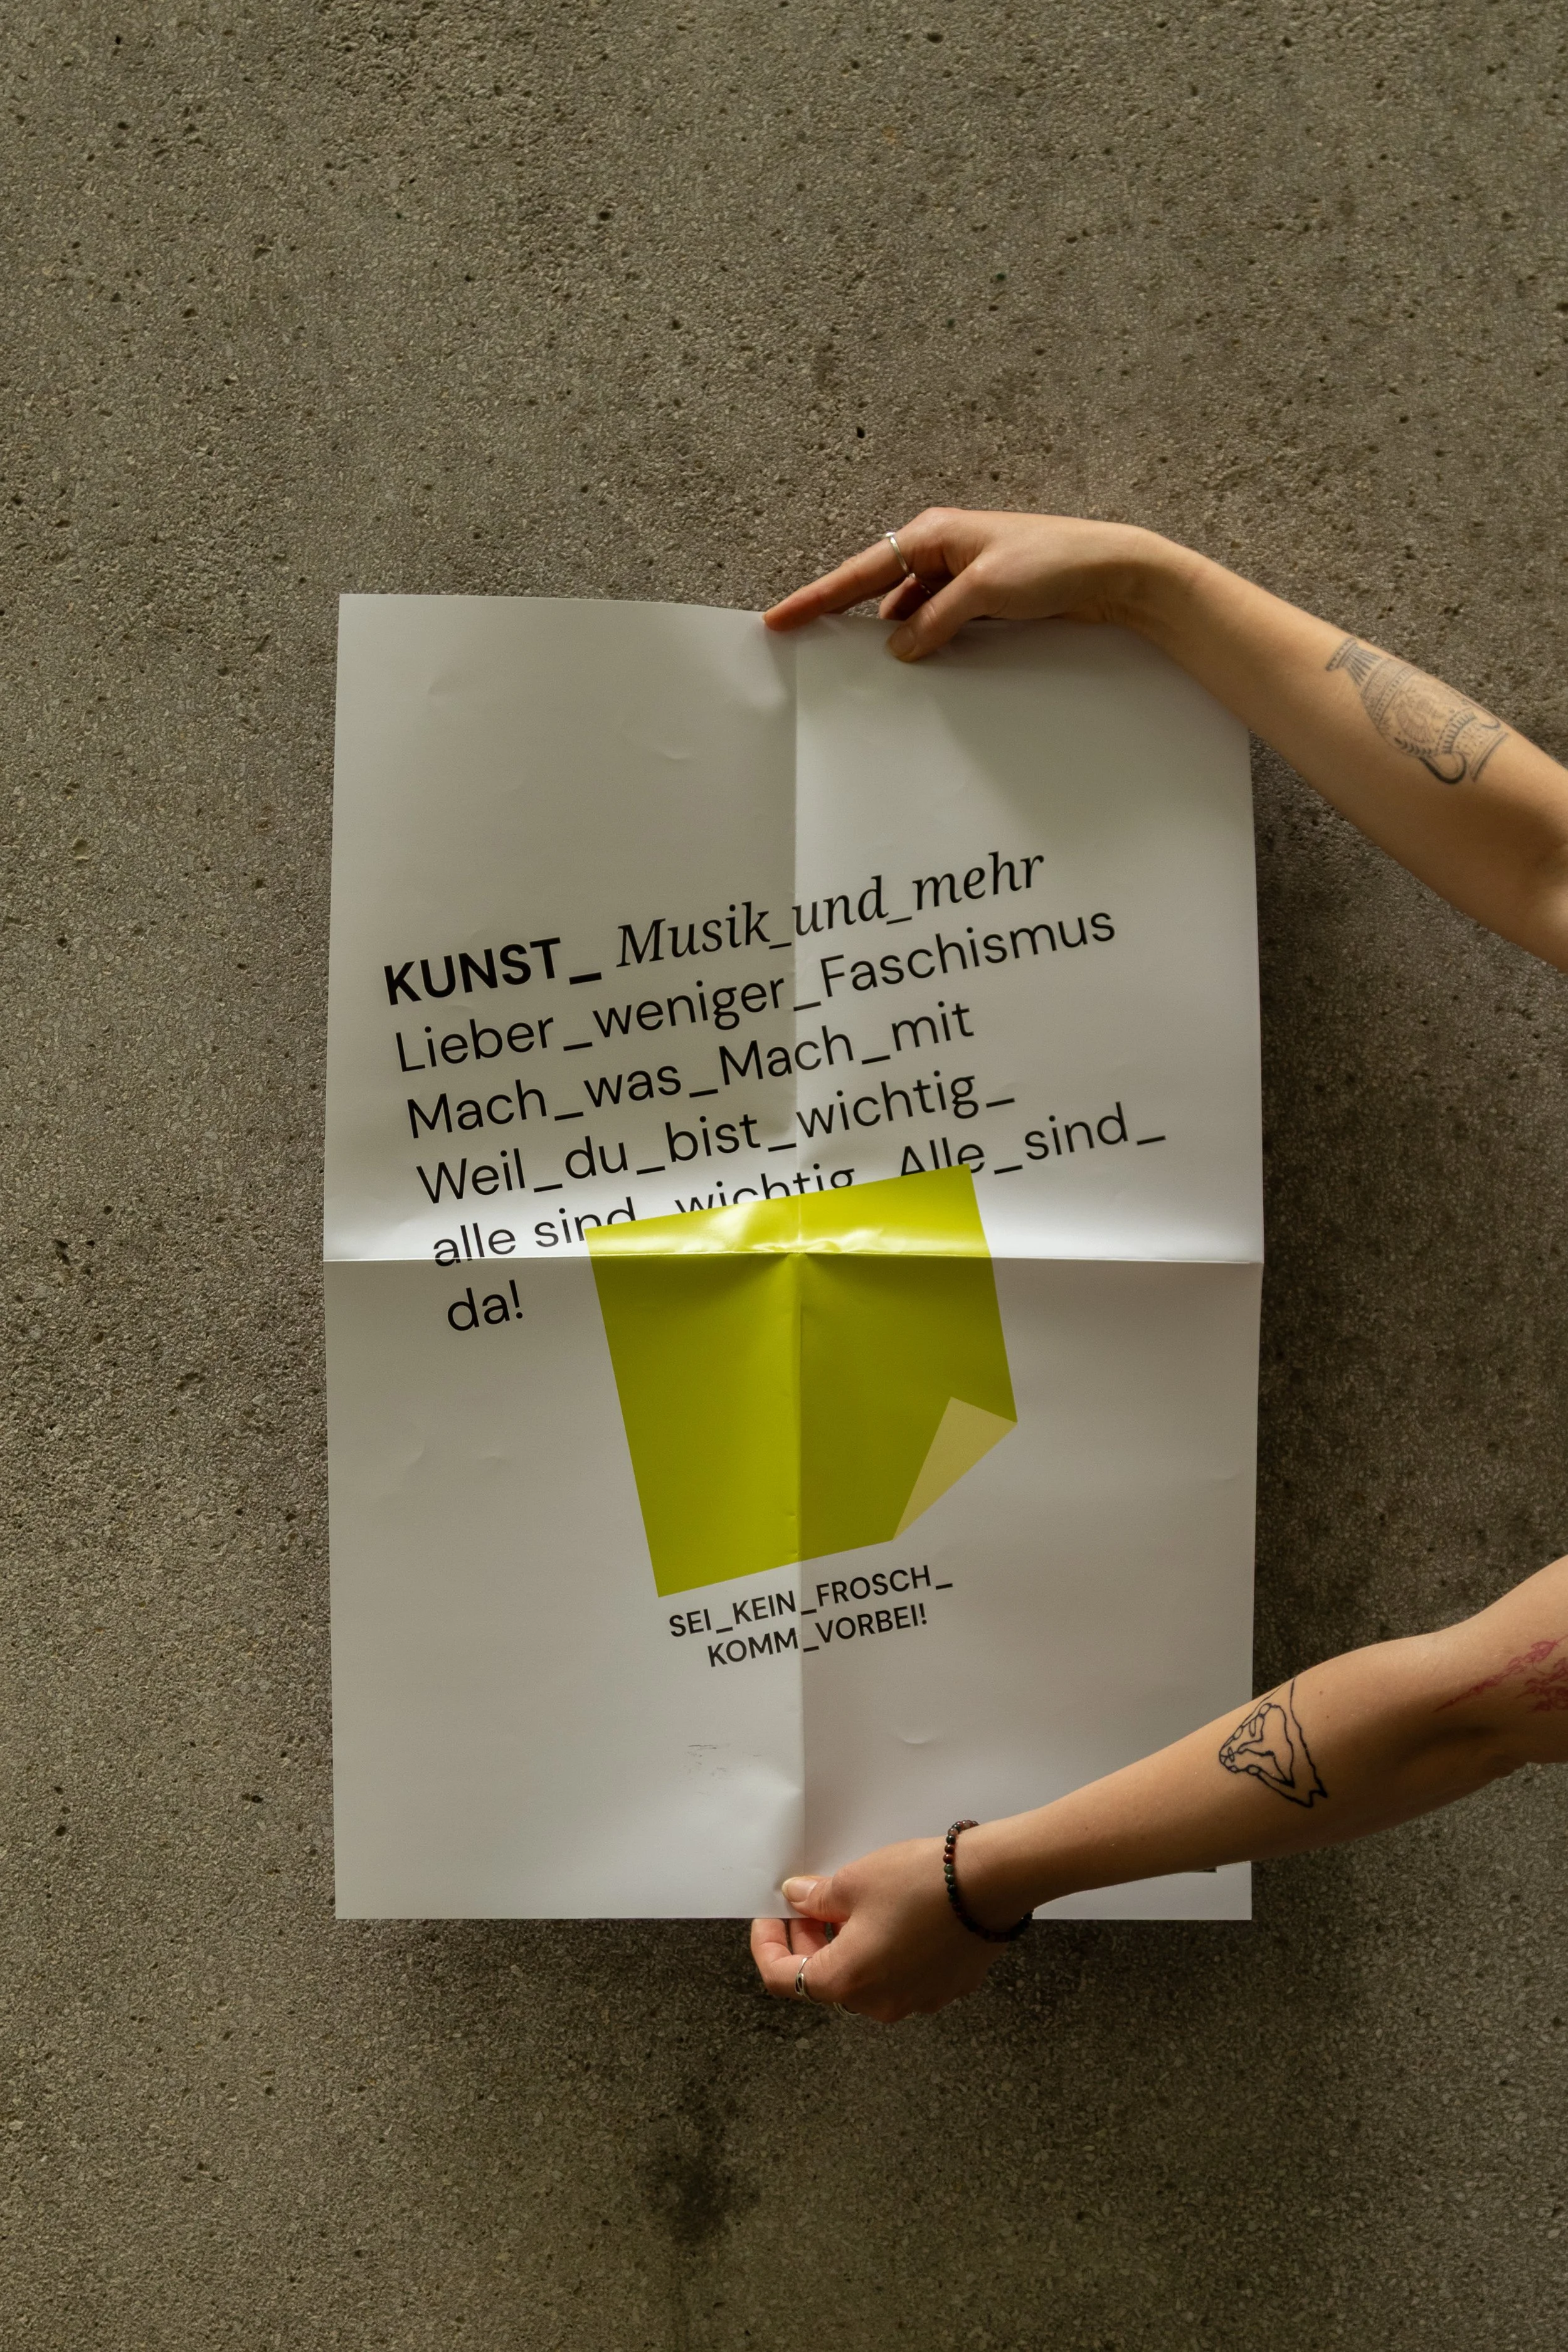 KUNST_ Musik_und_mehr
Lieber_weniger_Faschismus
Mach_was_Mach_mit
Weil_du_bist_wichtig_
alle sind_wichtig_Alle_sind_
da!
SEI_KEIN_FROSCH_
KOMM_VORBEI!